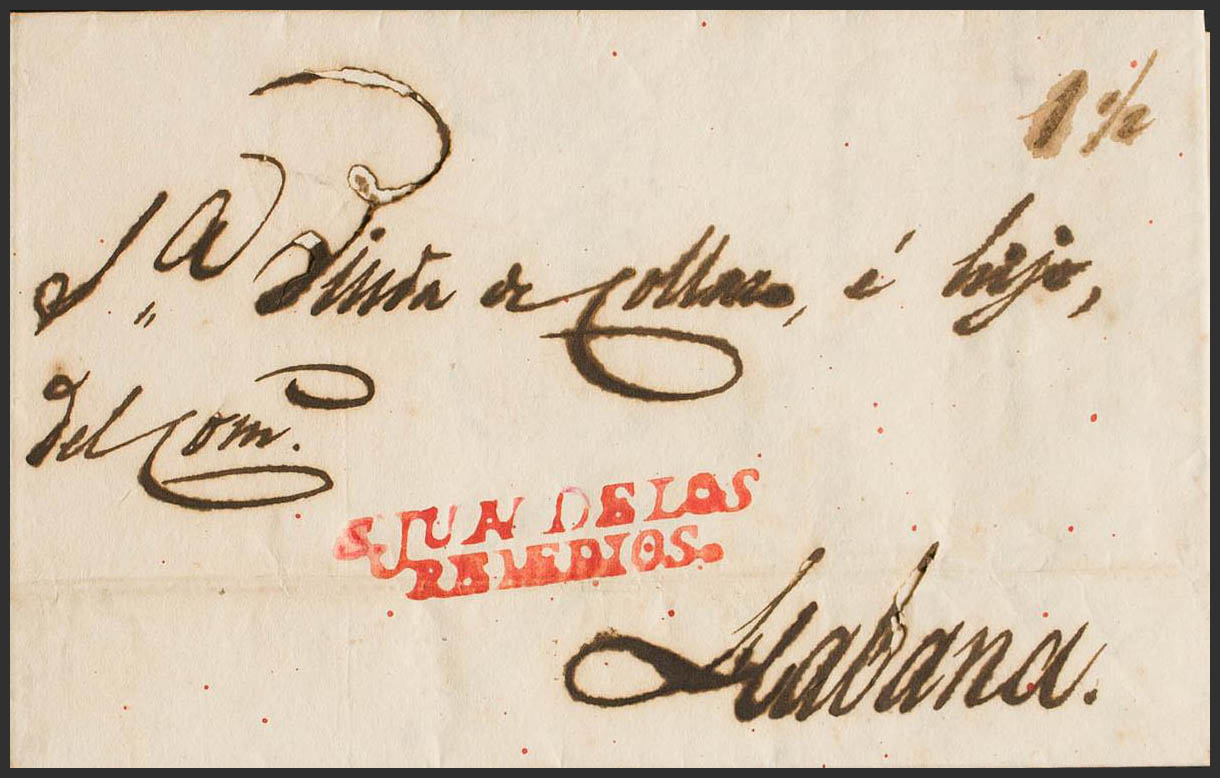 1 1/2
S.ª Viuda de Collazo, é hijo,
del Com.º
S. JUAN DE LOS
REMEDIOS.
Habana.